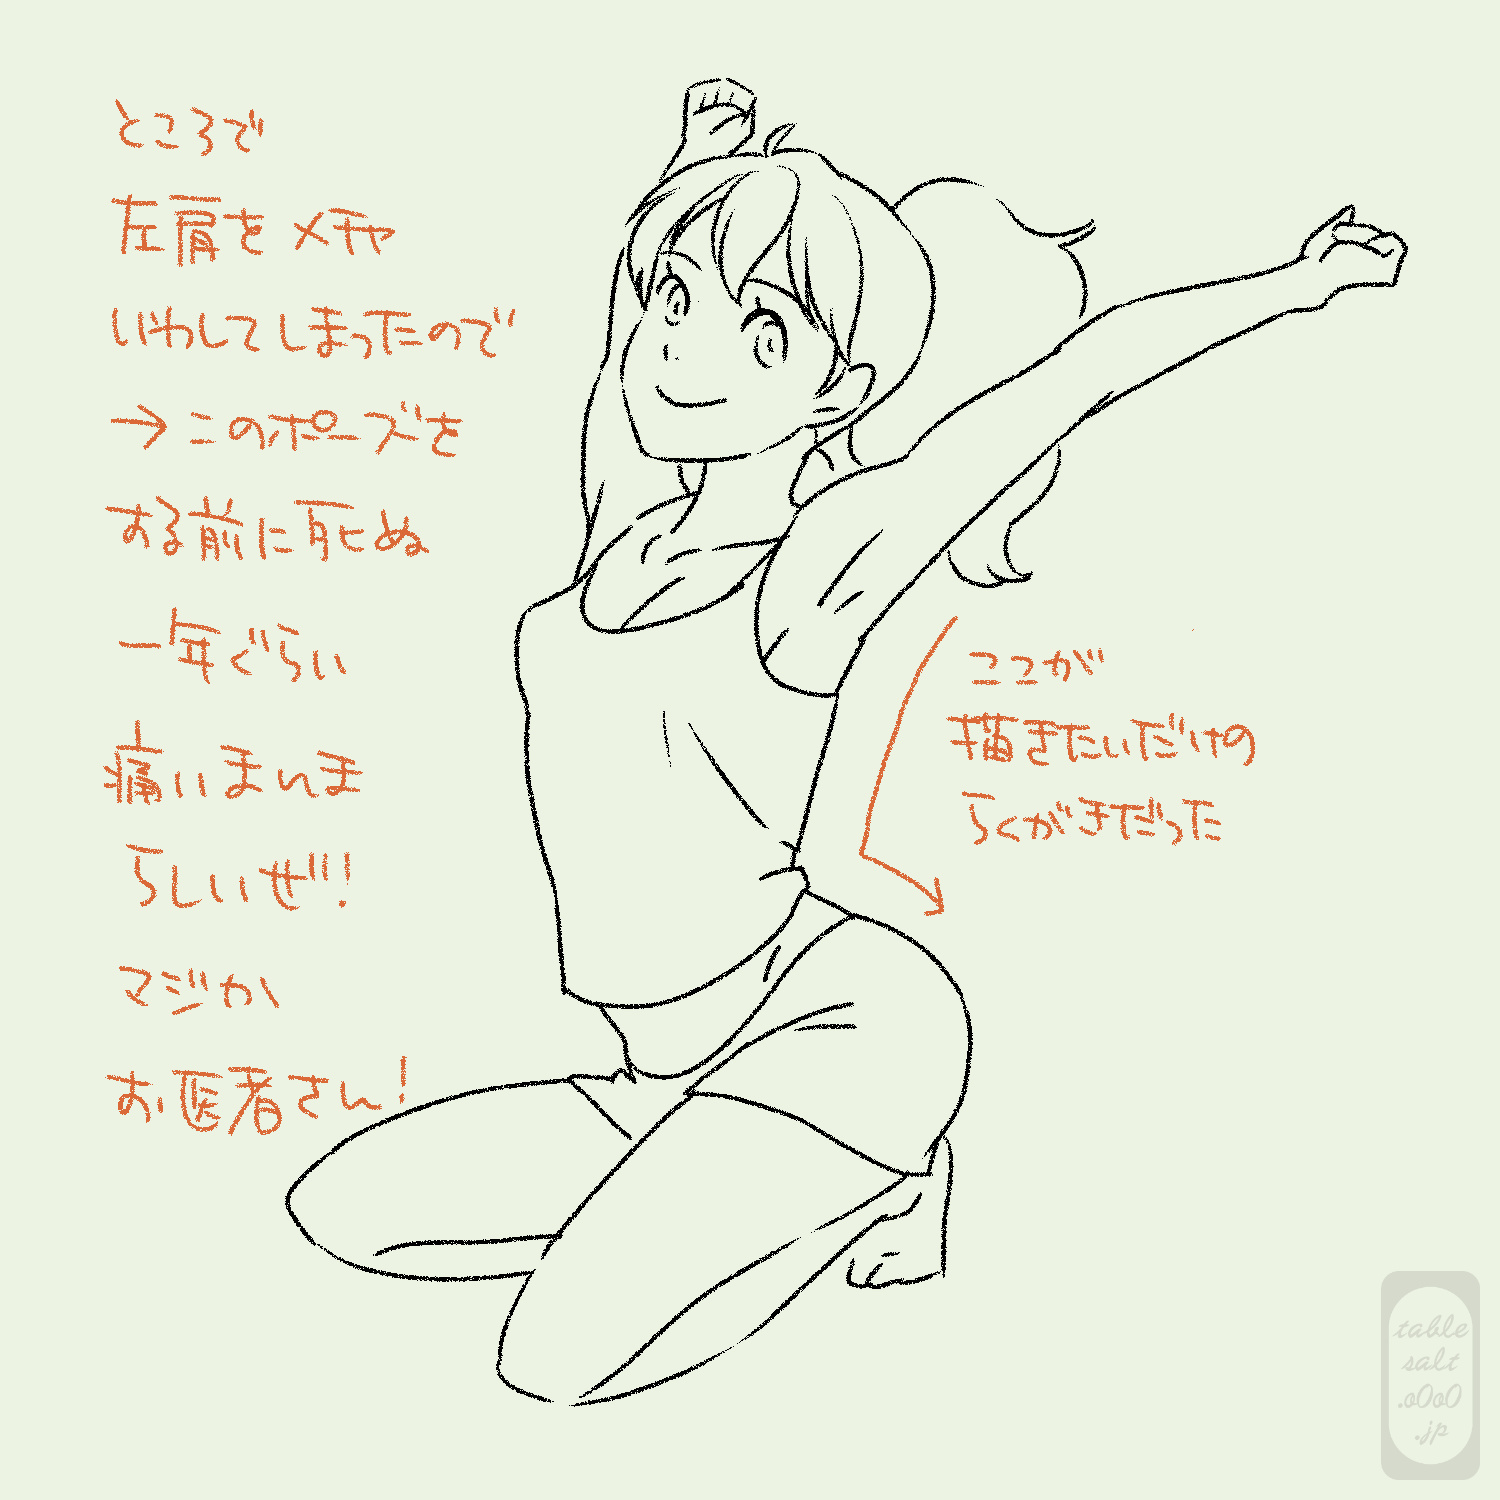 ところで
左肩をメチャ
いわしてしまったので
→このポーズを
する前に死ぬ
一年ぐらい
痛いまんま
らしいぜ!
マジか
お医者さん!
ここが
描きたいだけの
らくがきだった
table
salt
.o0o0
.jp